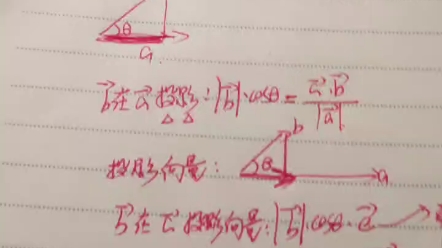 θ
a
b⃗在a⃗投影:|b⃗|·cosθ = a⃗·b⃗/|a⃗|
b
投影向量: θ a
b⃗在a⃗投影向量:|b⃗|·cosθ·